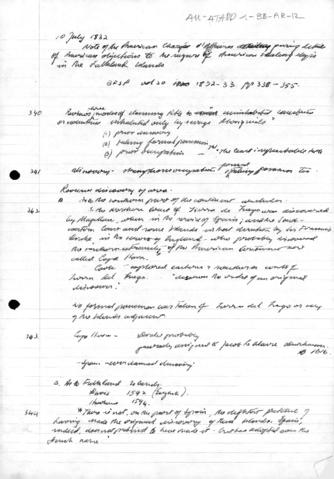 AU-ATADD 1-BB-AR-12
10 July 1832
Note of the American Chargé d'Affaires giving details
of American objections to the seizure of American sealing ships
in the Falkland Islands
BFSP vol 20 1832-33 pp 338-355.
340 Various modes of claiming title to uninhabited
or inhabited only by savage Aboriginals
(a) prior discovery
(b) taking formal possession
(c) prior occupation the least imperfectable title
341 discovery - occupation formal possession too.
Reviews discovery of area.
A. As to southern part of the continent includes
342 "the northern coast of Tierra del Fuego was discovered
by Magellan, when in the service of Spain; and the south-
eastern coast and some Islands in that direction, by Sir Francis
Drake, in the service of England who probably discovered
the southern extremity of the American Continent now
called Cape Horn.
Cook explored eastern & southern coasts of
Tierra del Fuego. "assumes the rights of an original
discoverer."
No formal possession was taken of Tierra del Fuego or any
of the Islands adjacent
343 Cape Horn - Drake probably
generally assigned to Jacob le Maire Dutchman
1616.
- Spain - never claimed discovery
B. As to Falkland Islands.
Davis 1592 (English).
Hawkins 1594.
344 "There is not, on the part of Spain, the slightest pretence of
having made the original discovery of these Islands. Spain,
indeed, does not pretend to have made it - but has adopted even the
French name"